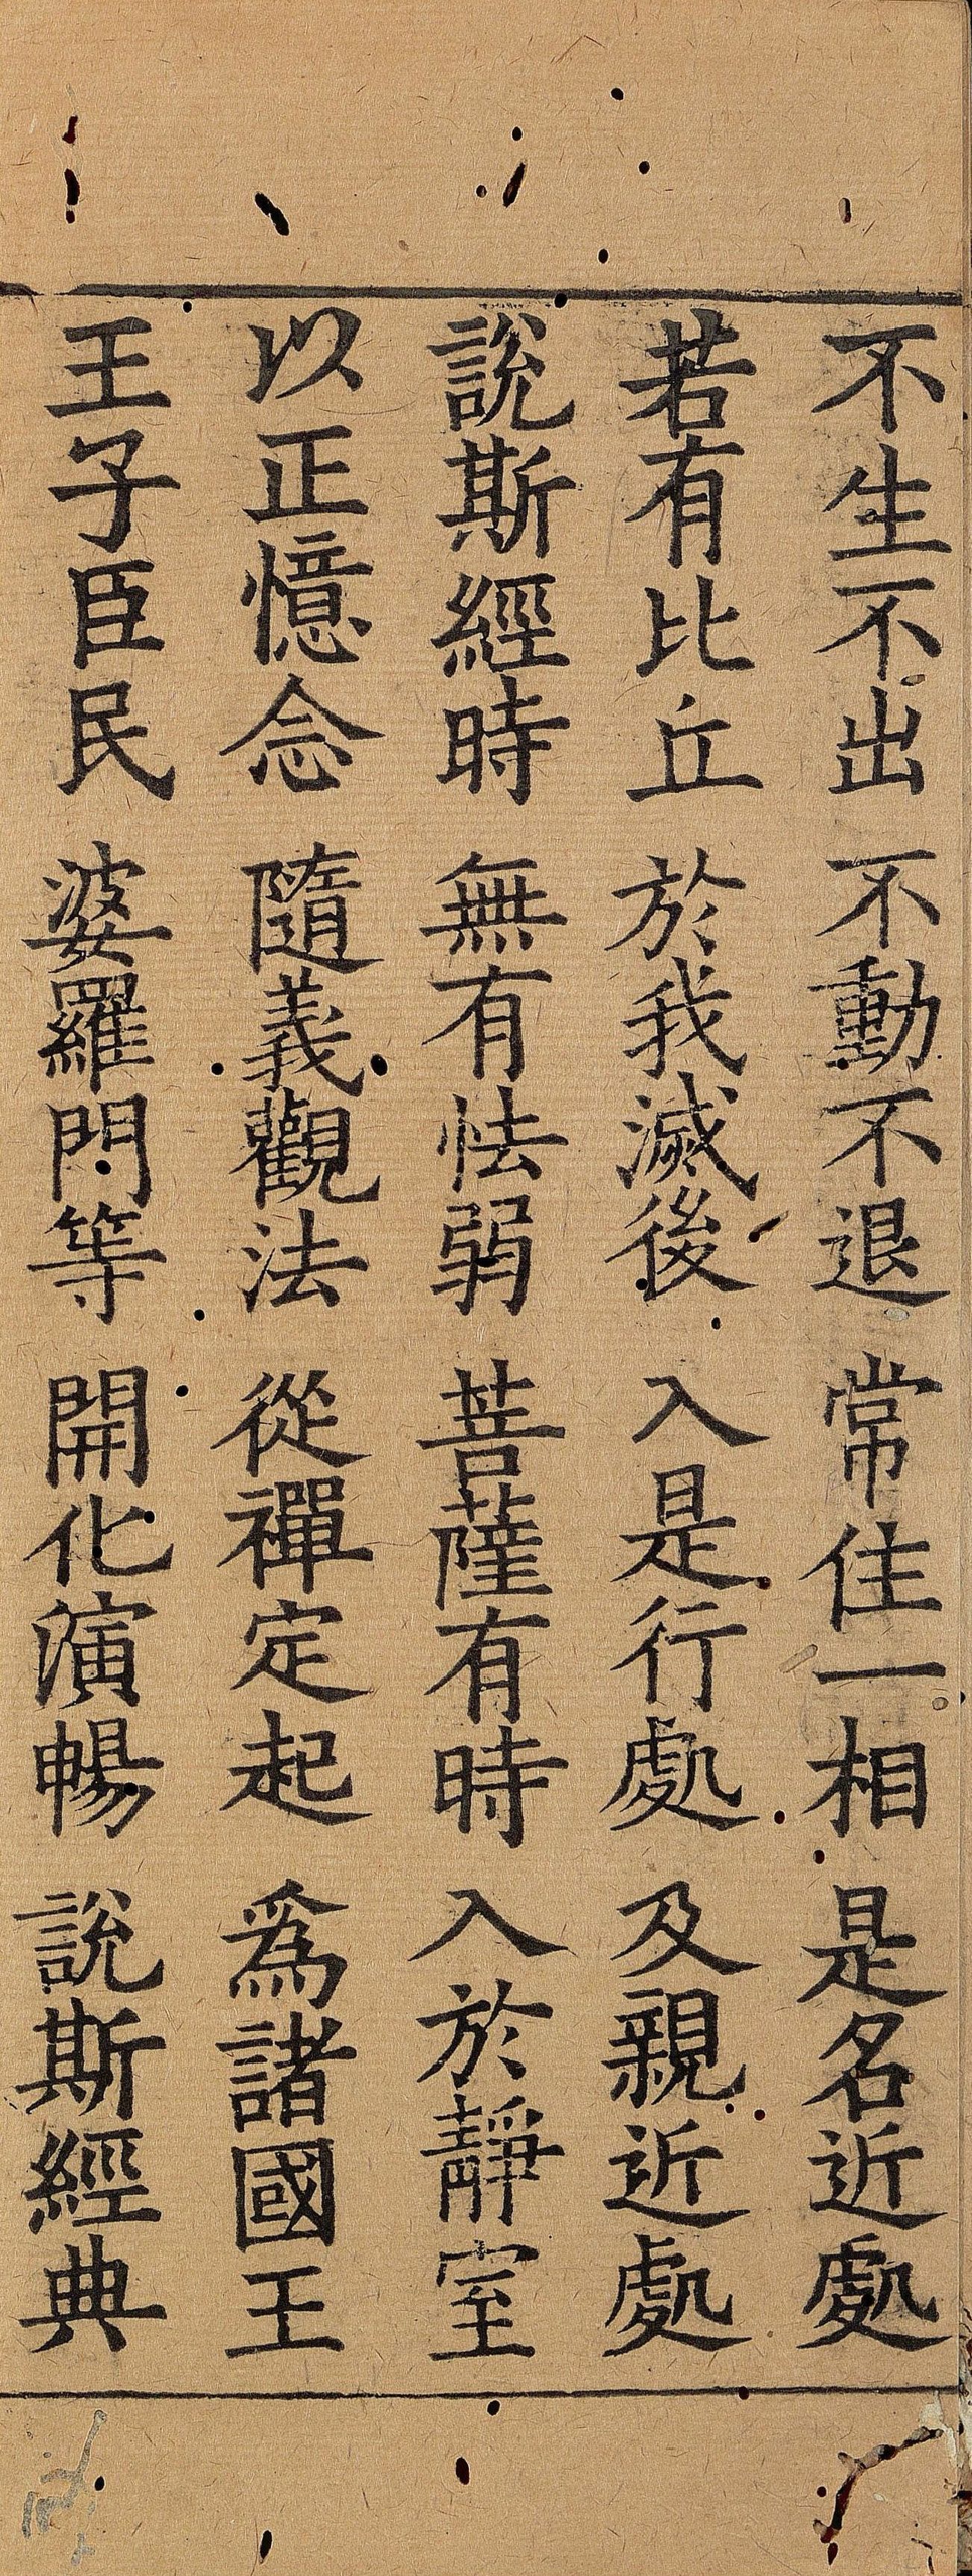 不生不出　不動不退　常住一相　是名近處
若有比丘　於我滅後　入是行處　及親近處
說斯經時　無有怯弱　菩薩有時　入於靜室
以正憶念　隨義觀法　從禪定起　爲諸國王
王子臣民　婆羅門等　開化演暢　說斯經典